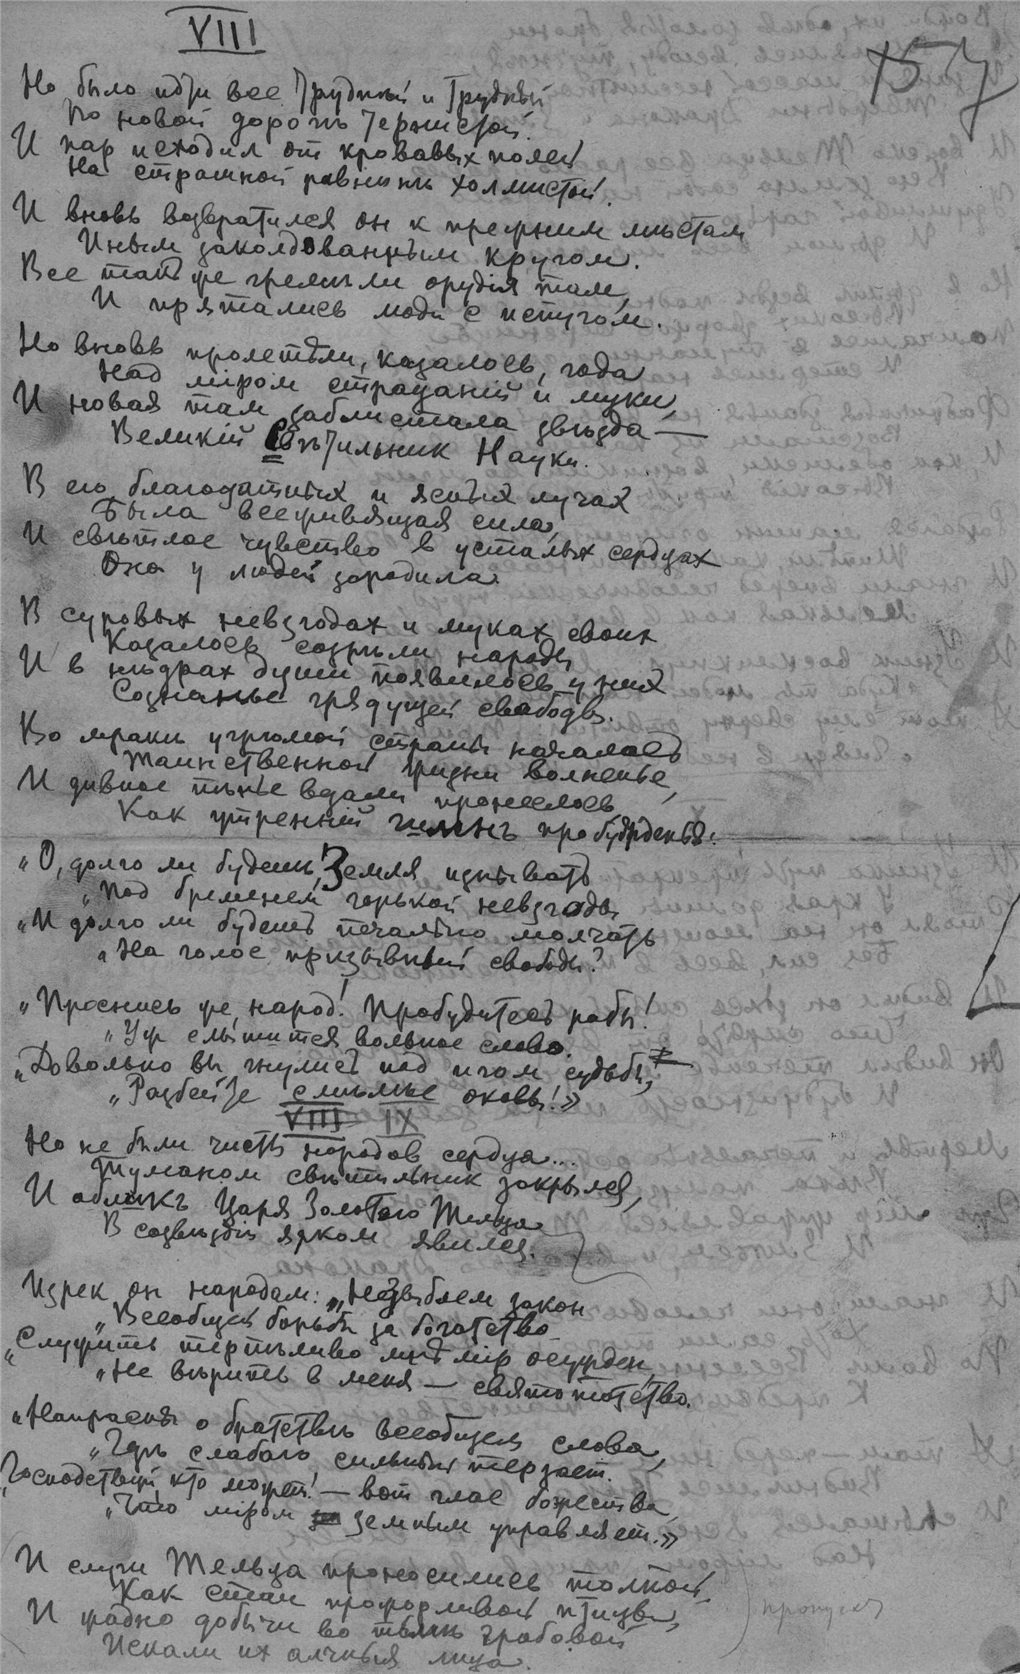 VIII
157
Но было идти все трудный и трудный
По новой дорогѣ тернистой.
И пар исходил от кровавых полей
На страшной равнинѣ холмистой.
И вновь возвратился он к прежним мѣстам
Иным заколдованным кругом.
Все так же гремѣли орудія там,
И прятались люди с испугом.
Но вновь пролетѣли, казалось, года
Над міром страданій и муки,
И новая там заблистала звѣзда —
Великій Свѣтильник Науки.
В его благодатных и ясных лучах
Была всеживящая сила,
И свѣтлое чувство в усталых сердцах
Она у людей зародила.
В суровых невзгодах и муках своих
Казалось созрѣли народы
И в нѣдрах души появилось у них
Сознанье грядущей свободы.
Во мракѣ угрюмой страны началось
Таинственной жизни волненье,
И дивное пѣнье вдали пронеслось
Как утренній гимнъ пробужденья.
„О, долго ли будешь, Земля изнывать
„Под бременем горькой невзгоды
„И долго ли будешь печально молчать
„На голос призывный свободы?
„Проснись же, народ! Пробудитесь рабы!
„Уж слышится вольное слово.
„Довольно вы гнулись под игом судьбы,
„Разбейте смѣлѣе оковы!»
VIII IX
Но не были чисты народов сердца...
Туманом свѣтильник закрылся,
И обликъ Царя Золотого Тельца
В созвѣздіи ярком явился.
Изрек он народам: „Незыблем закон
„Всеобщей борьбы за богатство
„Служить терпѣливо мнѣ мір осужден,
„Не вѣрить в меня — святотатство.
„Напрасны о братствѣ всеобщем слова,
„Здѣсь слабаго сильный терзает.
„Господствуй, кто может! — вот глас божества,
„Что міром земным управляет.»
И слуги Тельца проносились толпой
Как стаи прожорливой птицы,
И жадно добычи во тьмѣ гробовой
Искали их алчныя лица.
пропуск